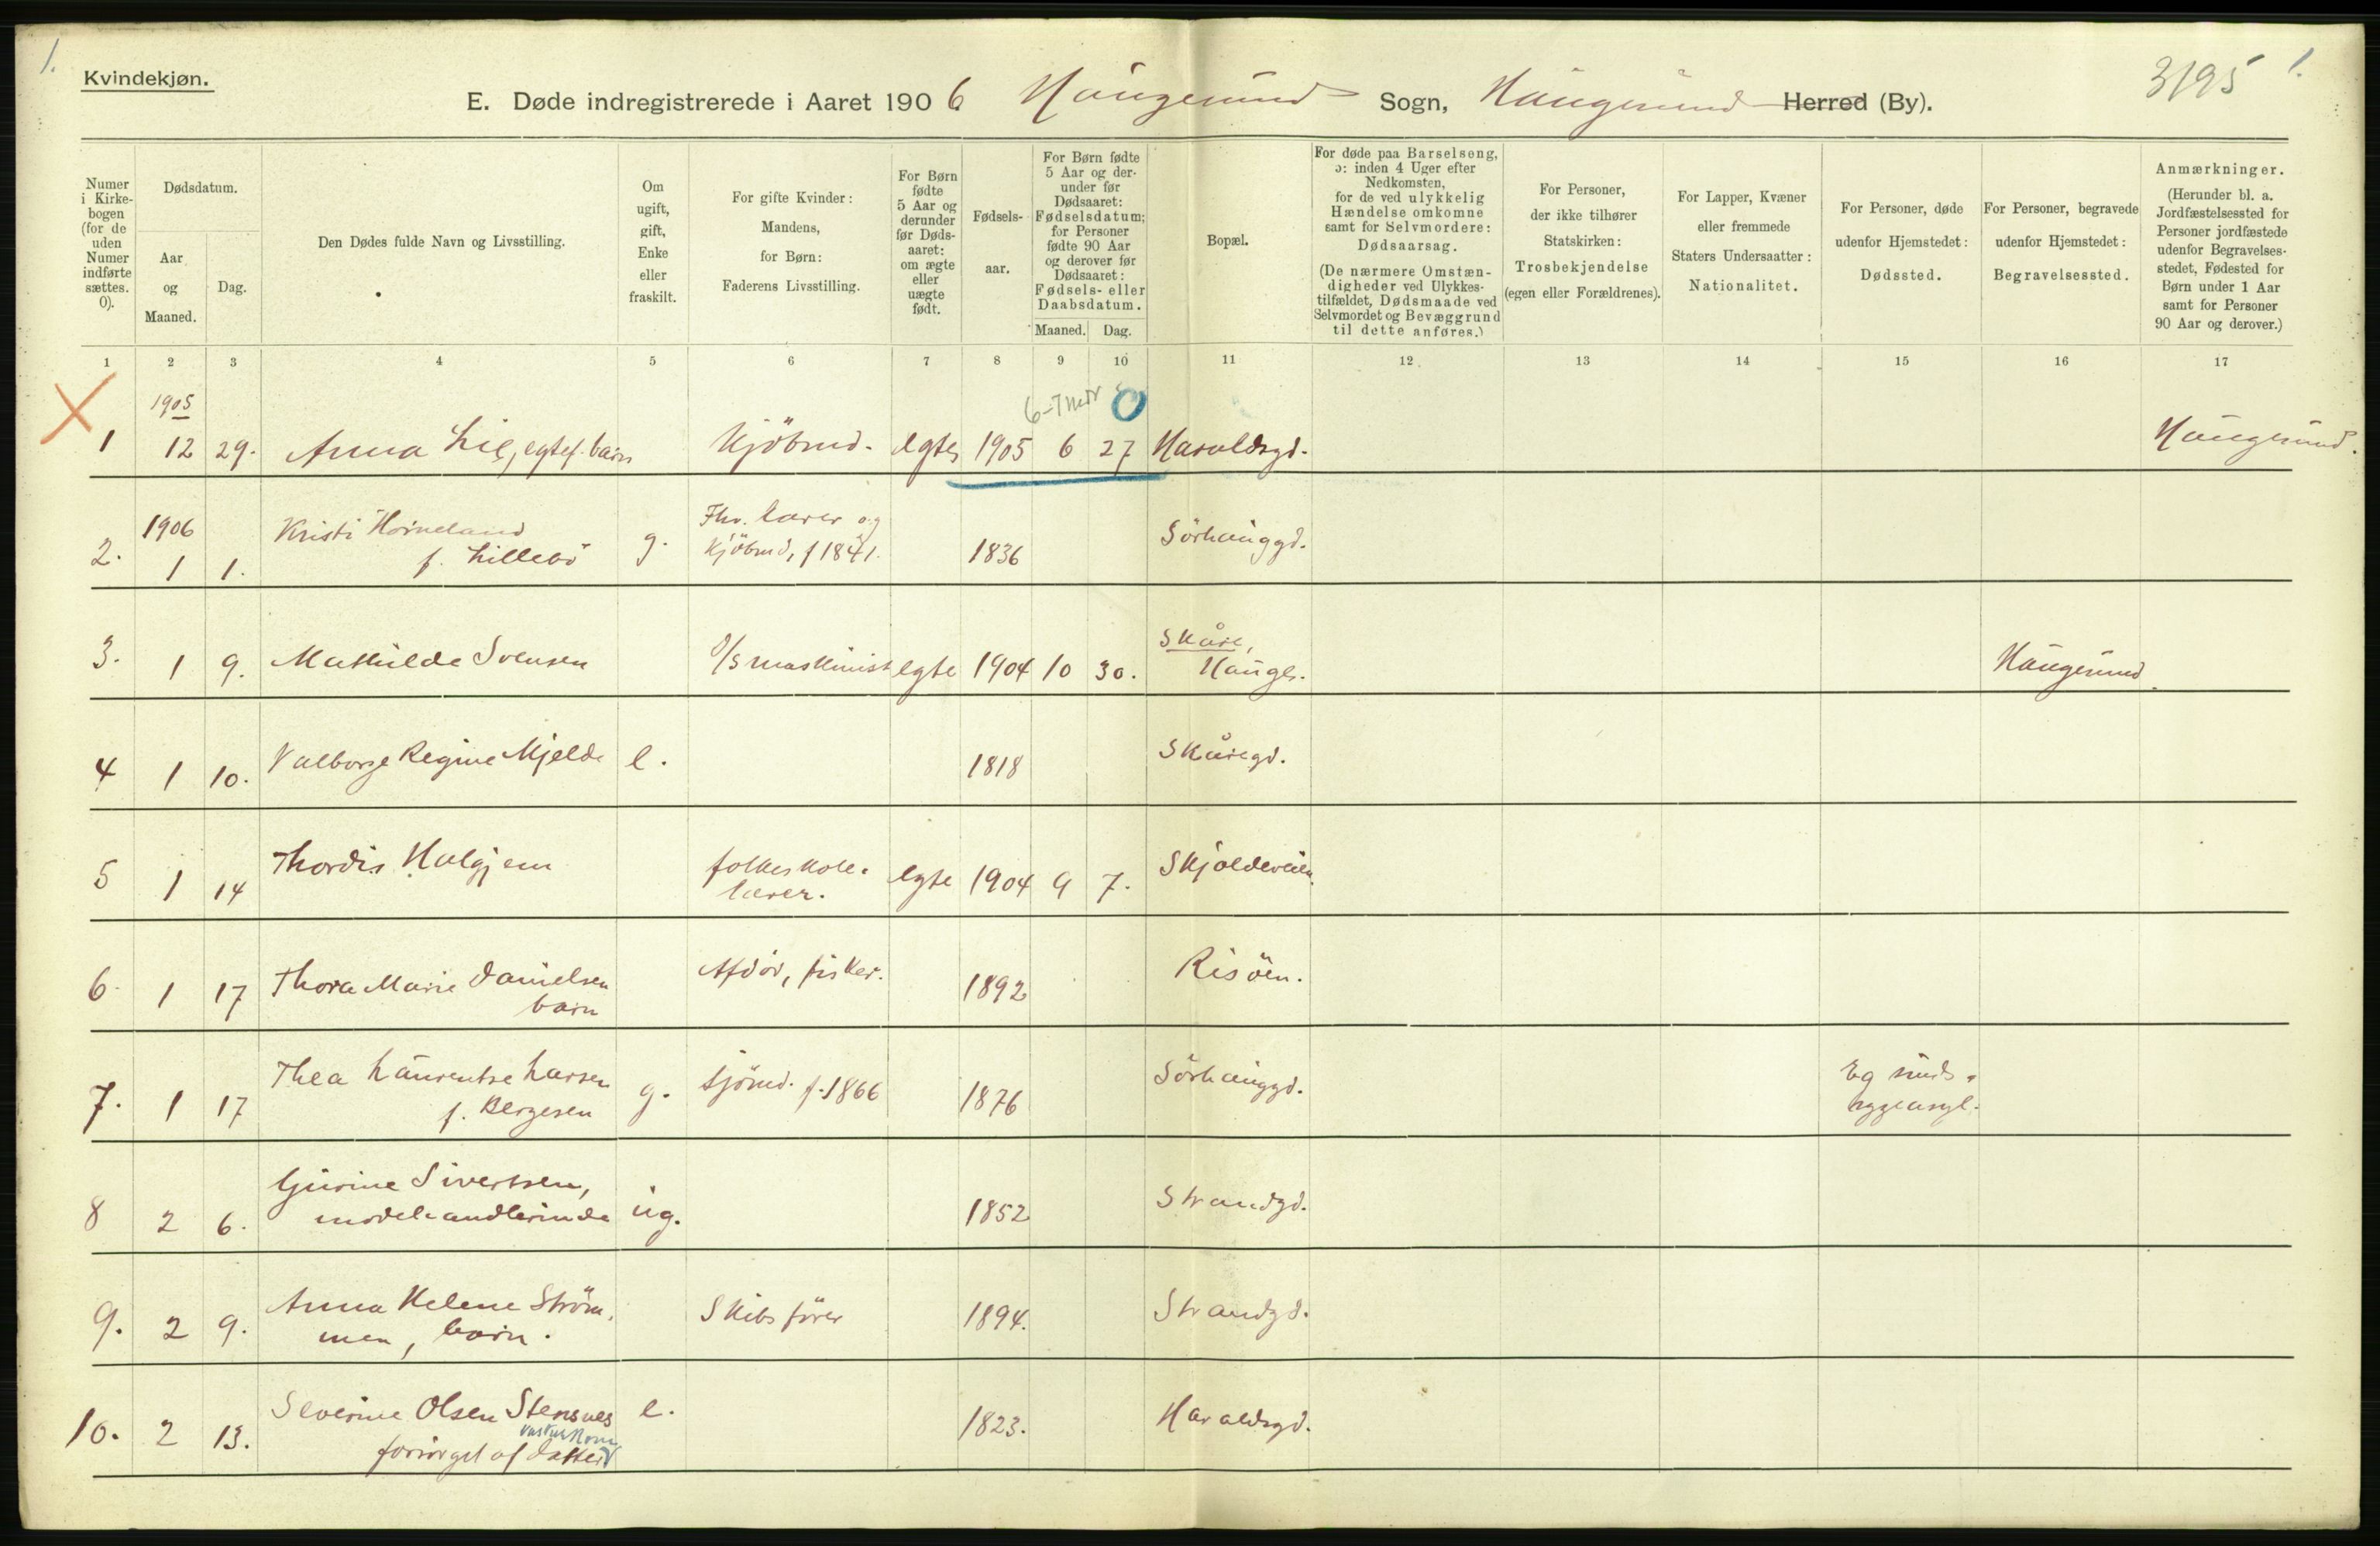 1.
Kvindekjøn.
E. Døde indregistrerede i Aaret 1906 Haugesund Sogn, Haugesund Herred (By).
3195
1.
Numer i Kirke-bogen (for de uden Numer indførte sættes. 0).
Dødsdatum.
Aar og Maaned.
Dag.
Den Dødes fulde Navn og Livsstilling.
Om ugift, gift, Enke eller fraskilt.
For gifte Kvinder: Mandens, for Børn: Faderens Livsstilling.
For Børn fødte 5 Aar og derunder før Døds-aaret: om ægte eller uægte født.
Fødsels-aar.
For Børn fødte 5 Aar og der-under før Dødsaaret: Fødselsdatum; for Personer fødte 90 Aar og derover før Dødsaaret: Fødsels- eller Daabsdatum.
Maaned. Dag.
Bopæl.
For døde paa Barselseng, ɔ: inden 4 Uger efter Nedkomsten, for de ved ulykkelig Hændelse omkomne samt for Selvmordere: Dødsaarsag.
(De nærmere Omstæn-digheder ved Ulykkes-tilfældet, Dødsmaade ved Selvmordet og Bevæggrund til dette anføres.)
For Personer, der ikke tilhører Statskirken: Trosbekjendelse (egen eller Forældrenes).
For Lapper, Kvæner eller fremmede Staters Undersaatter: Nationalitet.
For Personer, døde udenfor Hjemstedet: Dødssted.
For Personer, begravede udenfor Hjemstedet: Begravelsessted.
Anmærkninger.
(Herunder bl. a. Jordfæstelsessted for Personer jordfæstede udenfor Begravelses-stedet, Fødested for Børn under 1 Aar samt for Personer 90 Aar og derover.)
1 2 3 4 5 6 7 8 9 10 11 12 13 14 15 16 17
1905
6-7 mdr 0
1 12 29. Anna Lie, egtef. barn Kjöbmd. egte 1905 6 27 Haraldsgd. Haugesund.
1906
2. 1 1. Kristi Horneland
f. Lillebö g. Fhv. lærer og
kjöbmd, f 1841. 1836 Sörhauggd.
3. 1 9. Mathilde Svensen D/S maskinist egte 1904 10 30. Skåre,
Hauges. Haugesund.
4 1 10. Valborg Regine Mjelde e. 1818 Skåregd.
5 1 14 Thordis Halgjem folkeskole-
lærer. egte 1904 9 7. Skjoldeveien.
6. 1 17 Thora Marie Danielsen
barn Afdöd, fisker. 1892 Risöen.
7. 1 17 Thea Laurentse Larsen
f. Bergesen g. sjömd. f. 1866 1876 Sörhauggd. Eg sinds-
sygeasyl.
8 2 6. Gurine Sivertsen,
modehandlerinde ug. 1852 Strandgd.
9. 2 9. Anna Helene Ström-
men, barn. Skibsförer 1894. Strandgd.
10. 2 13. Severine Olsen Stensnes
forsörget af datter
vaskerkone e. 1823. Haraldsgd.